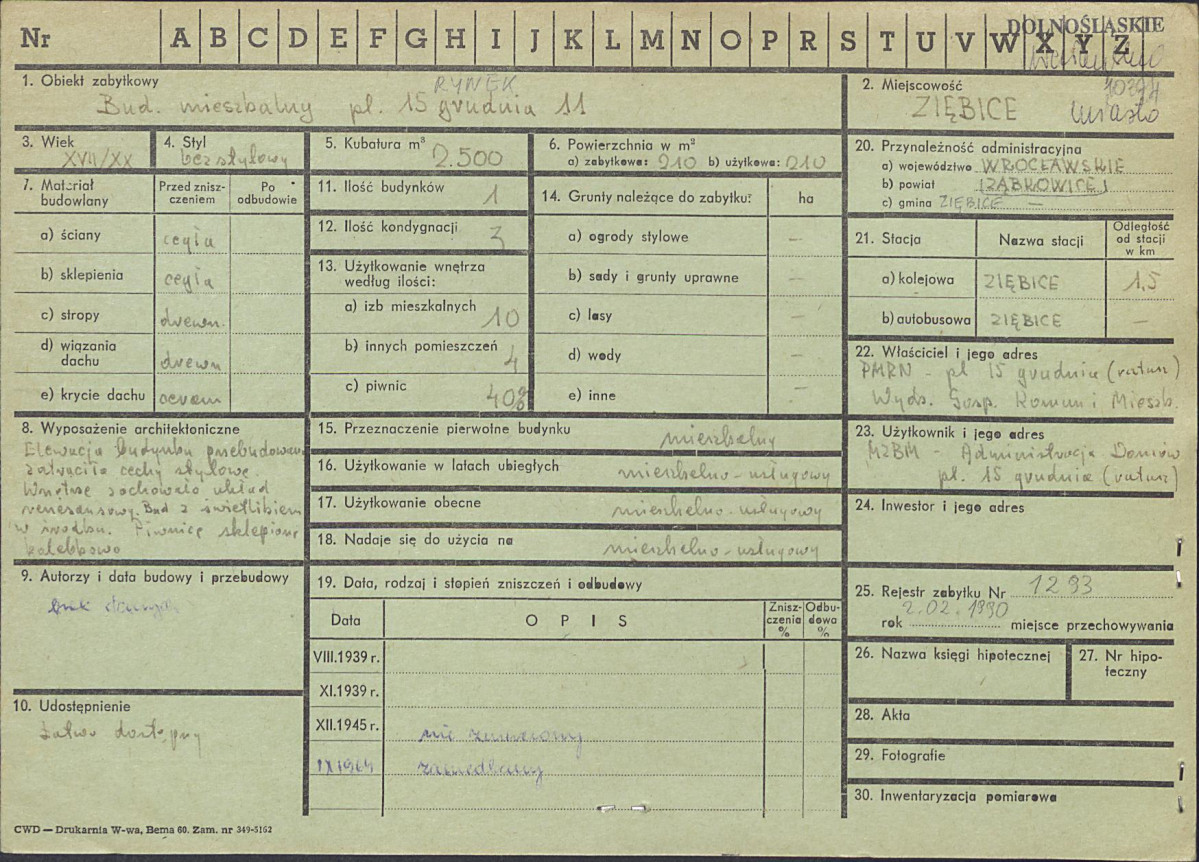 Nr A B C D E F G H I J K L M N O P R S T U V W X Y Z
DOLNOŚLĄSKIE
1. Obiekt zabytkowy
RYNEK
Bud. mieszkalny pl. 15 grudnia 11
2. Miejscowość
ZIĘBICE
miasto
3. Wiek
XVII/XX
4. Styl
bezstylowy
5. Kubatura m³ 2.500
6. Powierzchnia w m²
a) zabytkowa: 210 b) użytkowa: 210
20. Przynależność administracyjna
a) województwo WROCŁAWSKIE
b) powiat ZĄBKOWICE
c) gmina ZIĘBICE —
7. Materiał budowlany
Przed zniszczeniem
Po odbudowie
a) ściany cegła
b) sklepienia cegła
c) stropy drewn.
d) wiązania dachu drewn
e) krycie dachu
11. Ilość budynków 1
12. Ilość kondygnacji 3
13. Użytkowanie wnętrza
według ilości:
a) izb mieszkalnych 10
b) innych pomieszczeń 4
c) piwnic
14. Grunty należące do zabytku: ha
a) ogrody stylowe —
b) sady i grunty uprawne —
c) lasy —
d) wody —
e) inne —
21. Stacja Nazwa stacji
Odległość
od stacji
w km
a) kolejowa ZIĘBICE 1,5
b) autobusowa ZIĘBICE —
22. Właściciel i jego adres
PMRN - pl 15 grudnia (ratusz)
Wydz. Gosp. Komun i Mieszk.
8. Wyposażenie architektoniczne
Elewacja budynku przebudowana
zatraciła cechy stylowe.
Wnętrze zachowało układ
renesansowy. Bud z świetlikiem
w środku. Piwnice sklepione
kolebkowo
15. Przeznaczenie pierwotne budynku mieszkalny
16. Użytkowanie w latach ubiegłych mieszkalno-usługowy
17. Użytkowanie obecne mieszkalno-usługowy
18. Nadaje się do użycia na mieszkalno-usługowy
23. Użytkownik i jego adres
MZBM - Administracja Domów
pl. 15 grudnia (ratusz)
24. Inwestor i jego adres
9. Autorzy i data budowy i przebudowy
brak danych
19. Data, rodzaj i stopień zniszczeń i odbudowy
Data OPIS
Znisz-
czenia
%
Odbu-
dowa
%
VIII.1939 r.
XI.1939 r.
XII.1945 r. nie zniszczony
IX 1964 zaniedbany
25. Rejestr zabytku Nr 1293
2.02.1990
rok miejsce przechowywania
26. Nazwa księgi hipotecznej
27. Nr hipo-
teczny
10. Udostępnienie
Łatwo dostępny
28. Akta
29. Fotografie
30. Inwentaryzacja pomiarowa
CWD — Drukarnia W-wa, Bema 60. Zam. nr 349-5162